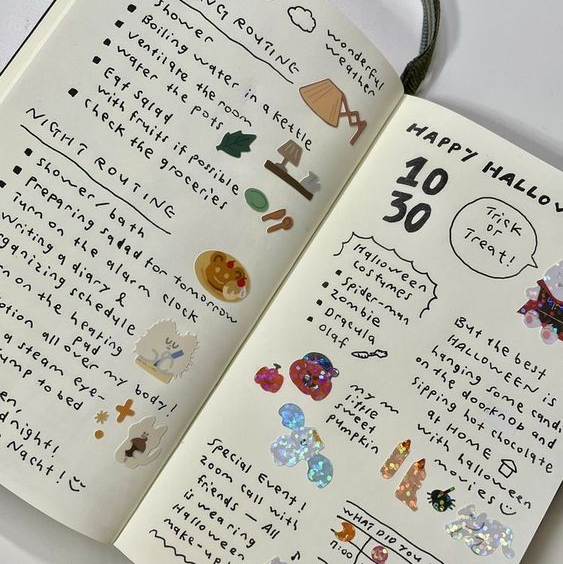 wonderful
weather
shower
Boiling water in a kettle
ventilate the room
water the pots
Eat salad
with fruits if possible
check the groceries
NIGHT ROUTING
shower/bath
Preparing salad for tomorrow
Turn on the alarm clock
Writing a diary &
organizing schedule
on the heating
pad
all over my body!
a steam eye-
jump to bed
night!
Nacht!
HAPPY
10
30
Trick
or
Treat!
Halloween
costumes
Spider-man
Zombie
Dracula
Olaf
my
little
sweet
pumpkin
But the best
HALLOWEEN is
hanging some
on the doorknob and
sipping hot chocolate
at HOME
with halloween
movies
Special Event!
zoom call with
friends - All
is wearing
Halloween
make-up!
WHAT DID YOU